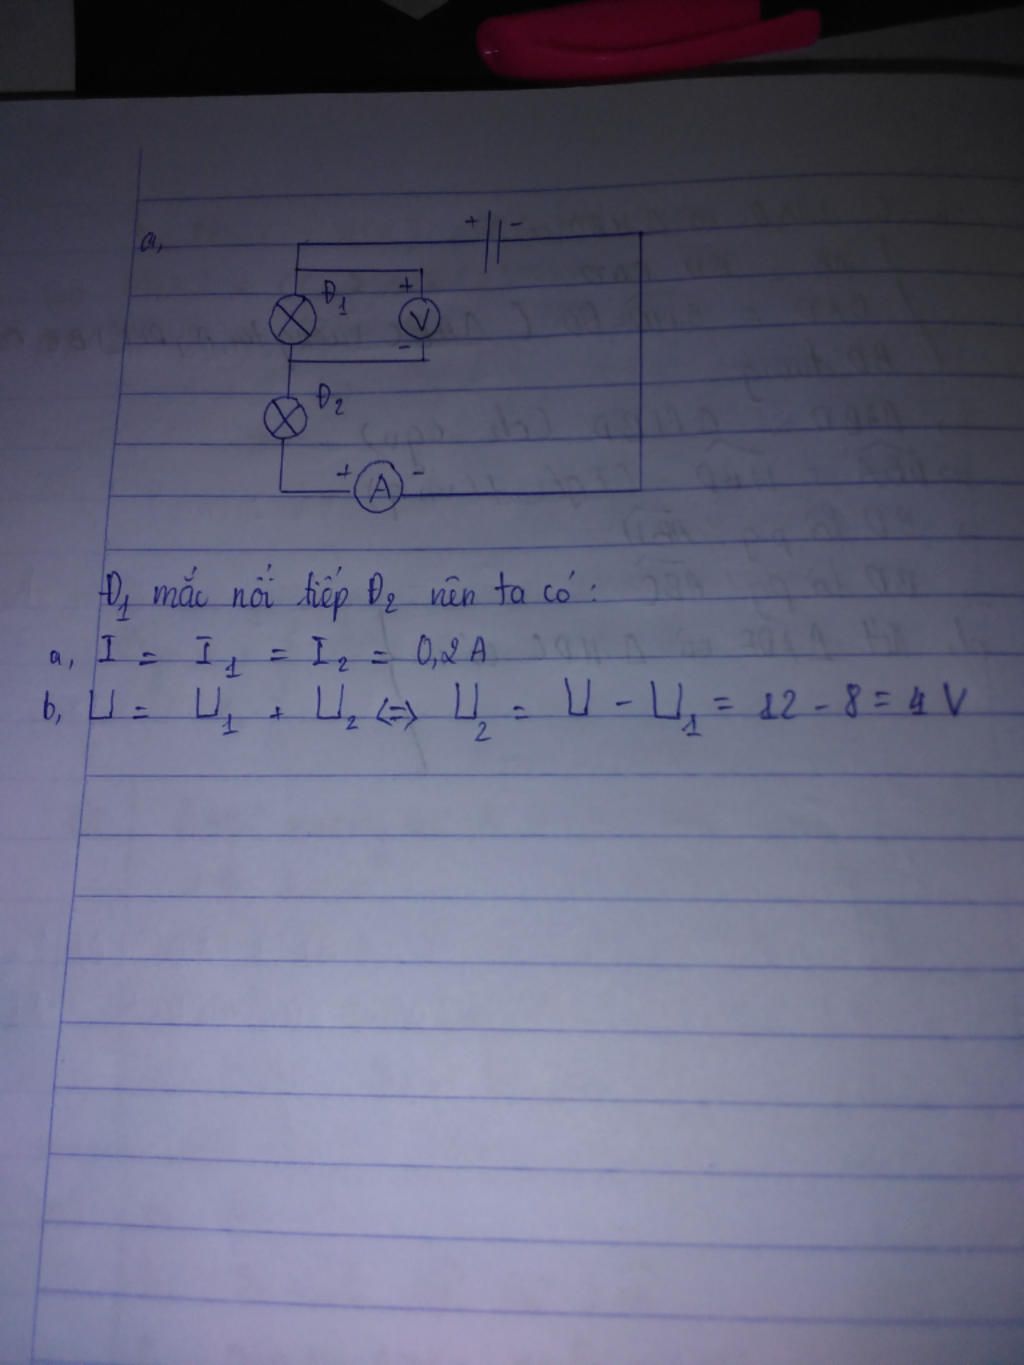 a,
+ -
Đ1 +
V
-
Đ2
+ A -
Đ1 mắc nối tiếp Đ2 nên ta có:
a, I = I1 = I2 = 0,2A
b, U = U1 + U2 <=> U2 = U - U1 = 12 - 8 = 4 V